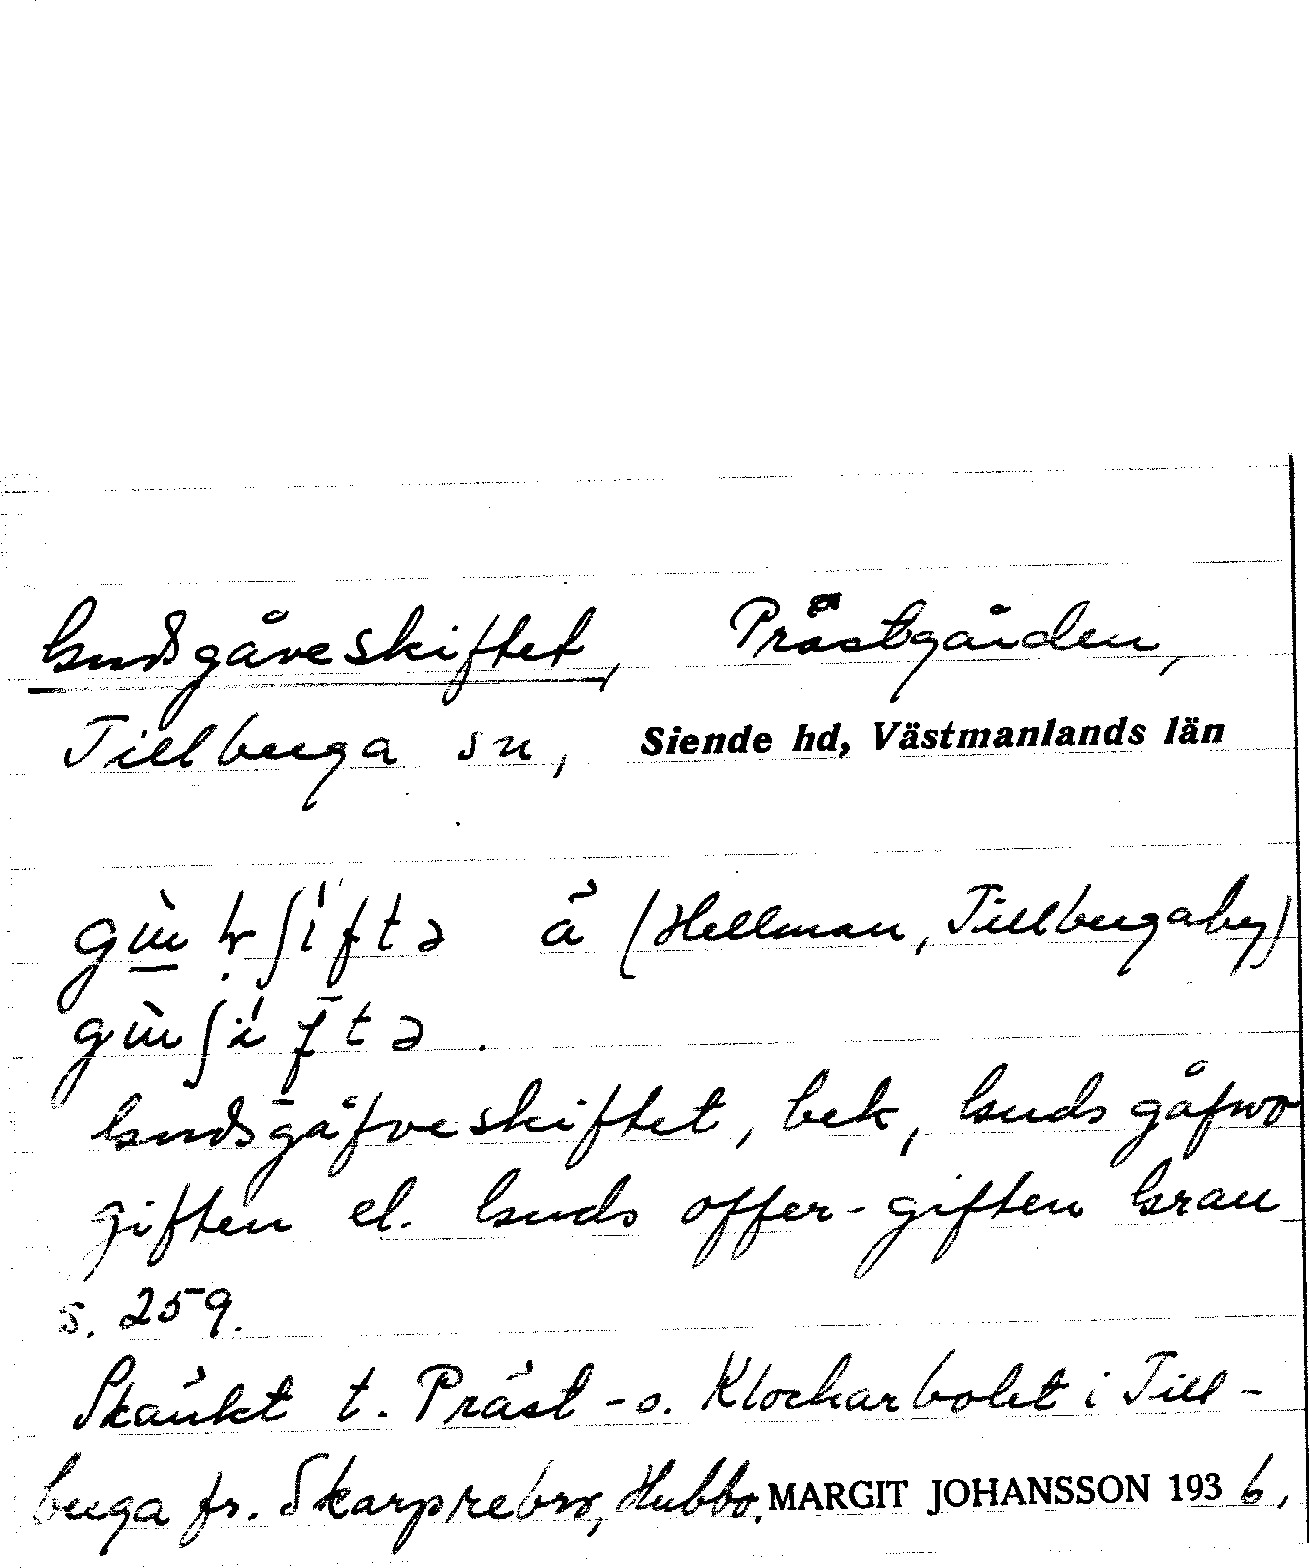 Gudsgåveskiftet, Prästgården,
Tillberga sn, Siende hd, Västmanlands län
ä (Hellman, Tillbergaby)
Gudsgåfveskiftet, bek, Guds gåfwo
giften el. Guds offer-giften Grau
s. 259.
Skänkt t. Präst- o. Klockarbolet i Till-
berga fr. Skarprebro, Hubbo. MARGIT JOHANSSON 1936,